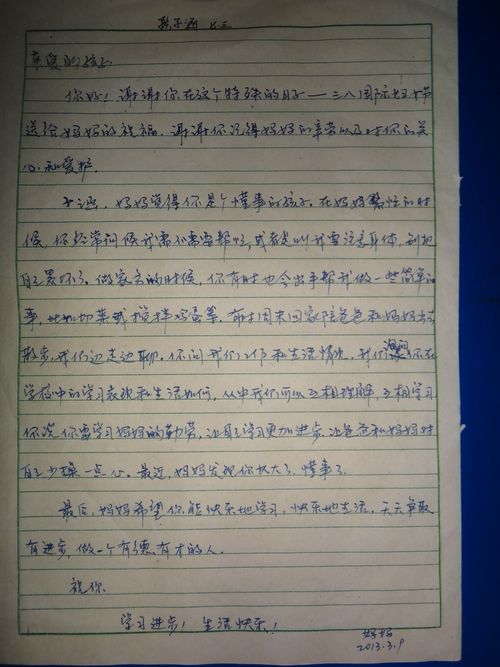 张子涵 七三
亲爱的孩子:
你好！谢谢你在这个特殊的日子——三八国际妇女节
送给妈妈的祝福。谢谢你记得妈妈的辛劳以及对你的关
心和爱护。
子涵，妈妈觉得你是个懂事的孩子。在妈妈繁忙的时
候，你经常问候我需不需要帮忙，或者是叫我要注意身体，别把
自己累坏了。做家务的时候，你有时也会出手帮我做一些简单的
事，比如切菜或搅拌鸡蛋等。有时周末回家陪爸爸和妈妈出去
散步，我们边走边聊。你问我们工作和生活情况，我们问你在
学校中的学习表现和生活如何，从中我们可以互相理解，互相学习
你说你要学习妈妈的勤劳，让自己学习更加进步，让爸爸和妈妈对
自己少操一点心。最近，妈妈发现你长大了，懂事了。
最后，妈妈希望你能快乐地学习，快乐地生活，天天争取
有进步，做一个有德有才的人。
祝你
学习进步！生活快乐！
妈妈
2013.3.9